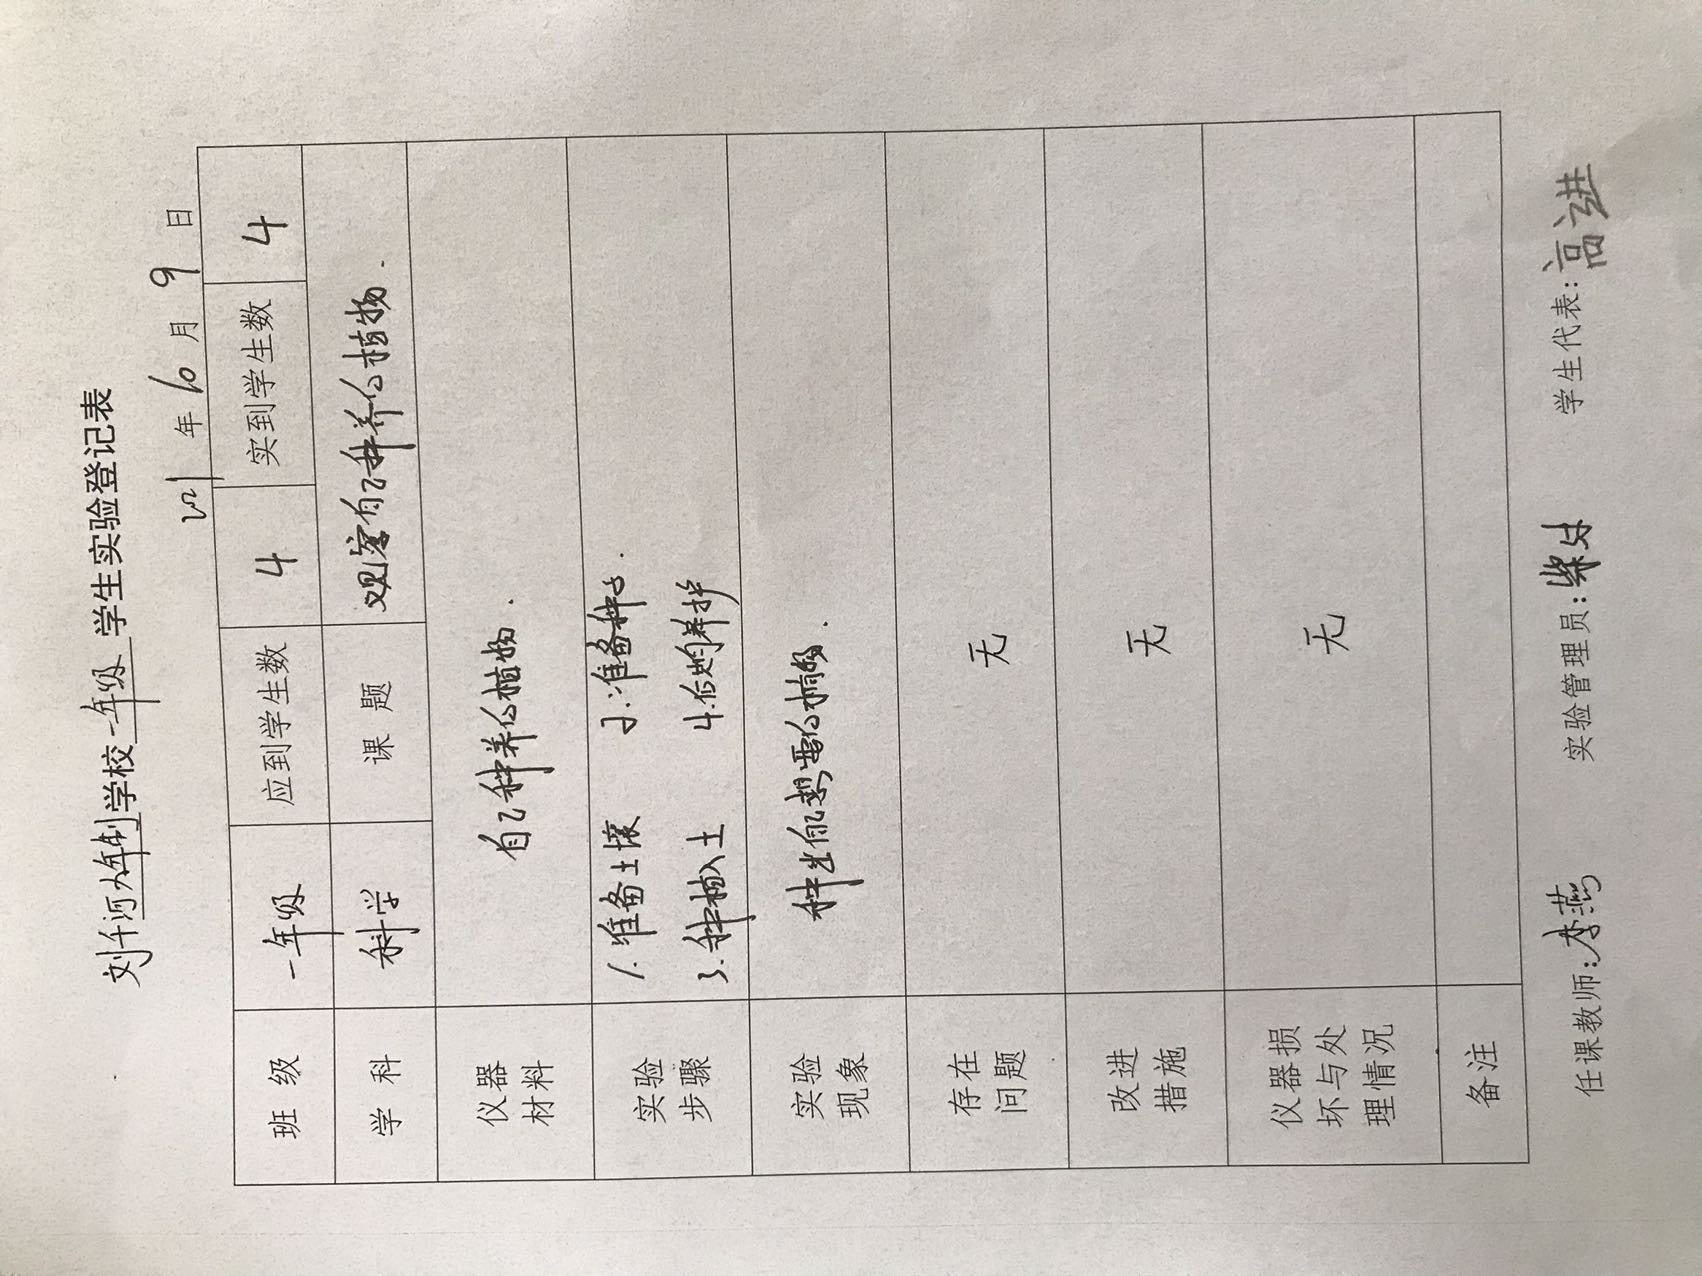 刘千河九年制学校一年级学生实验登记表
21年10月9日
班级 一年级 应到学生数 4 实到学生数 4
学科 科学 课题 观察自己种养的植物.
仪器材料 自己种养的植物.
实验步骤 1.准备土壤 2.准备种子.
3.种植入土 4.后期养护
实验现象 种出自己想要的植物.
存在问题 无
改进措施 无
仪器损坏与处理情况 无
备注
任课教师:李燕 实验管理员:柴 学生代表:高进